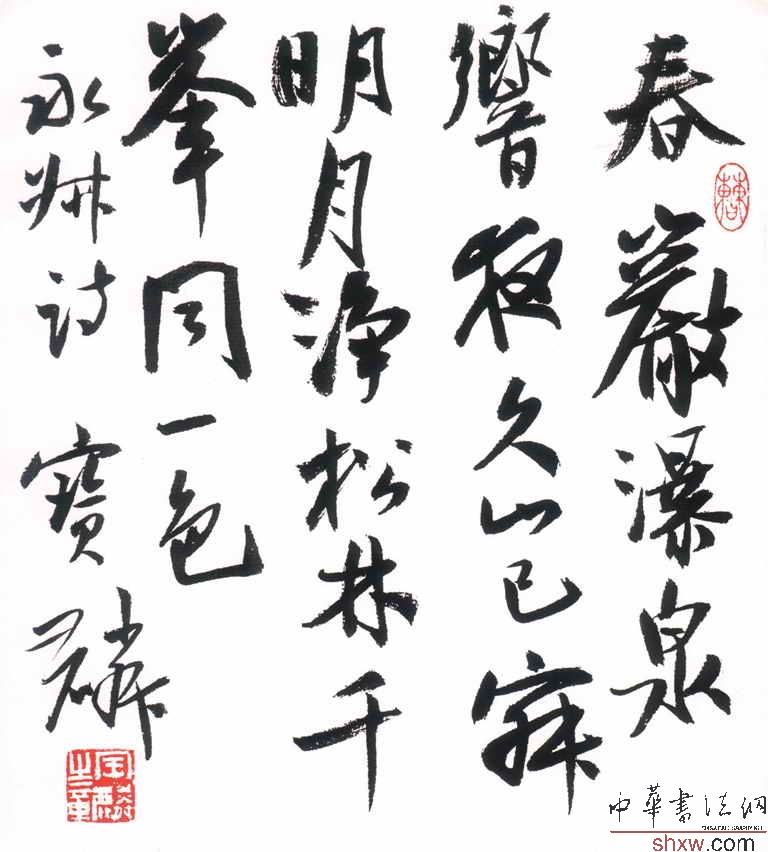 春巖瀑泉
響夜久山已寂
明月淨松林千
峯同一色
永叔詩 寶麟
中華書法網
shxw.com